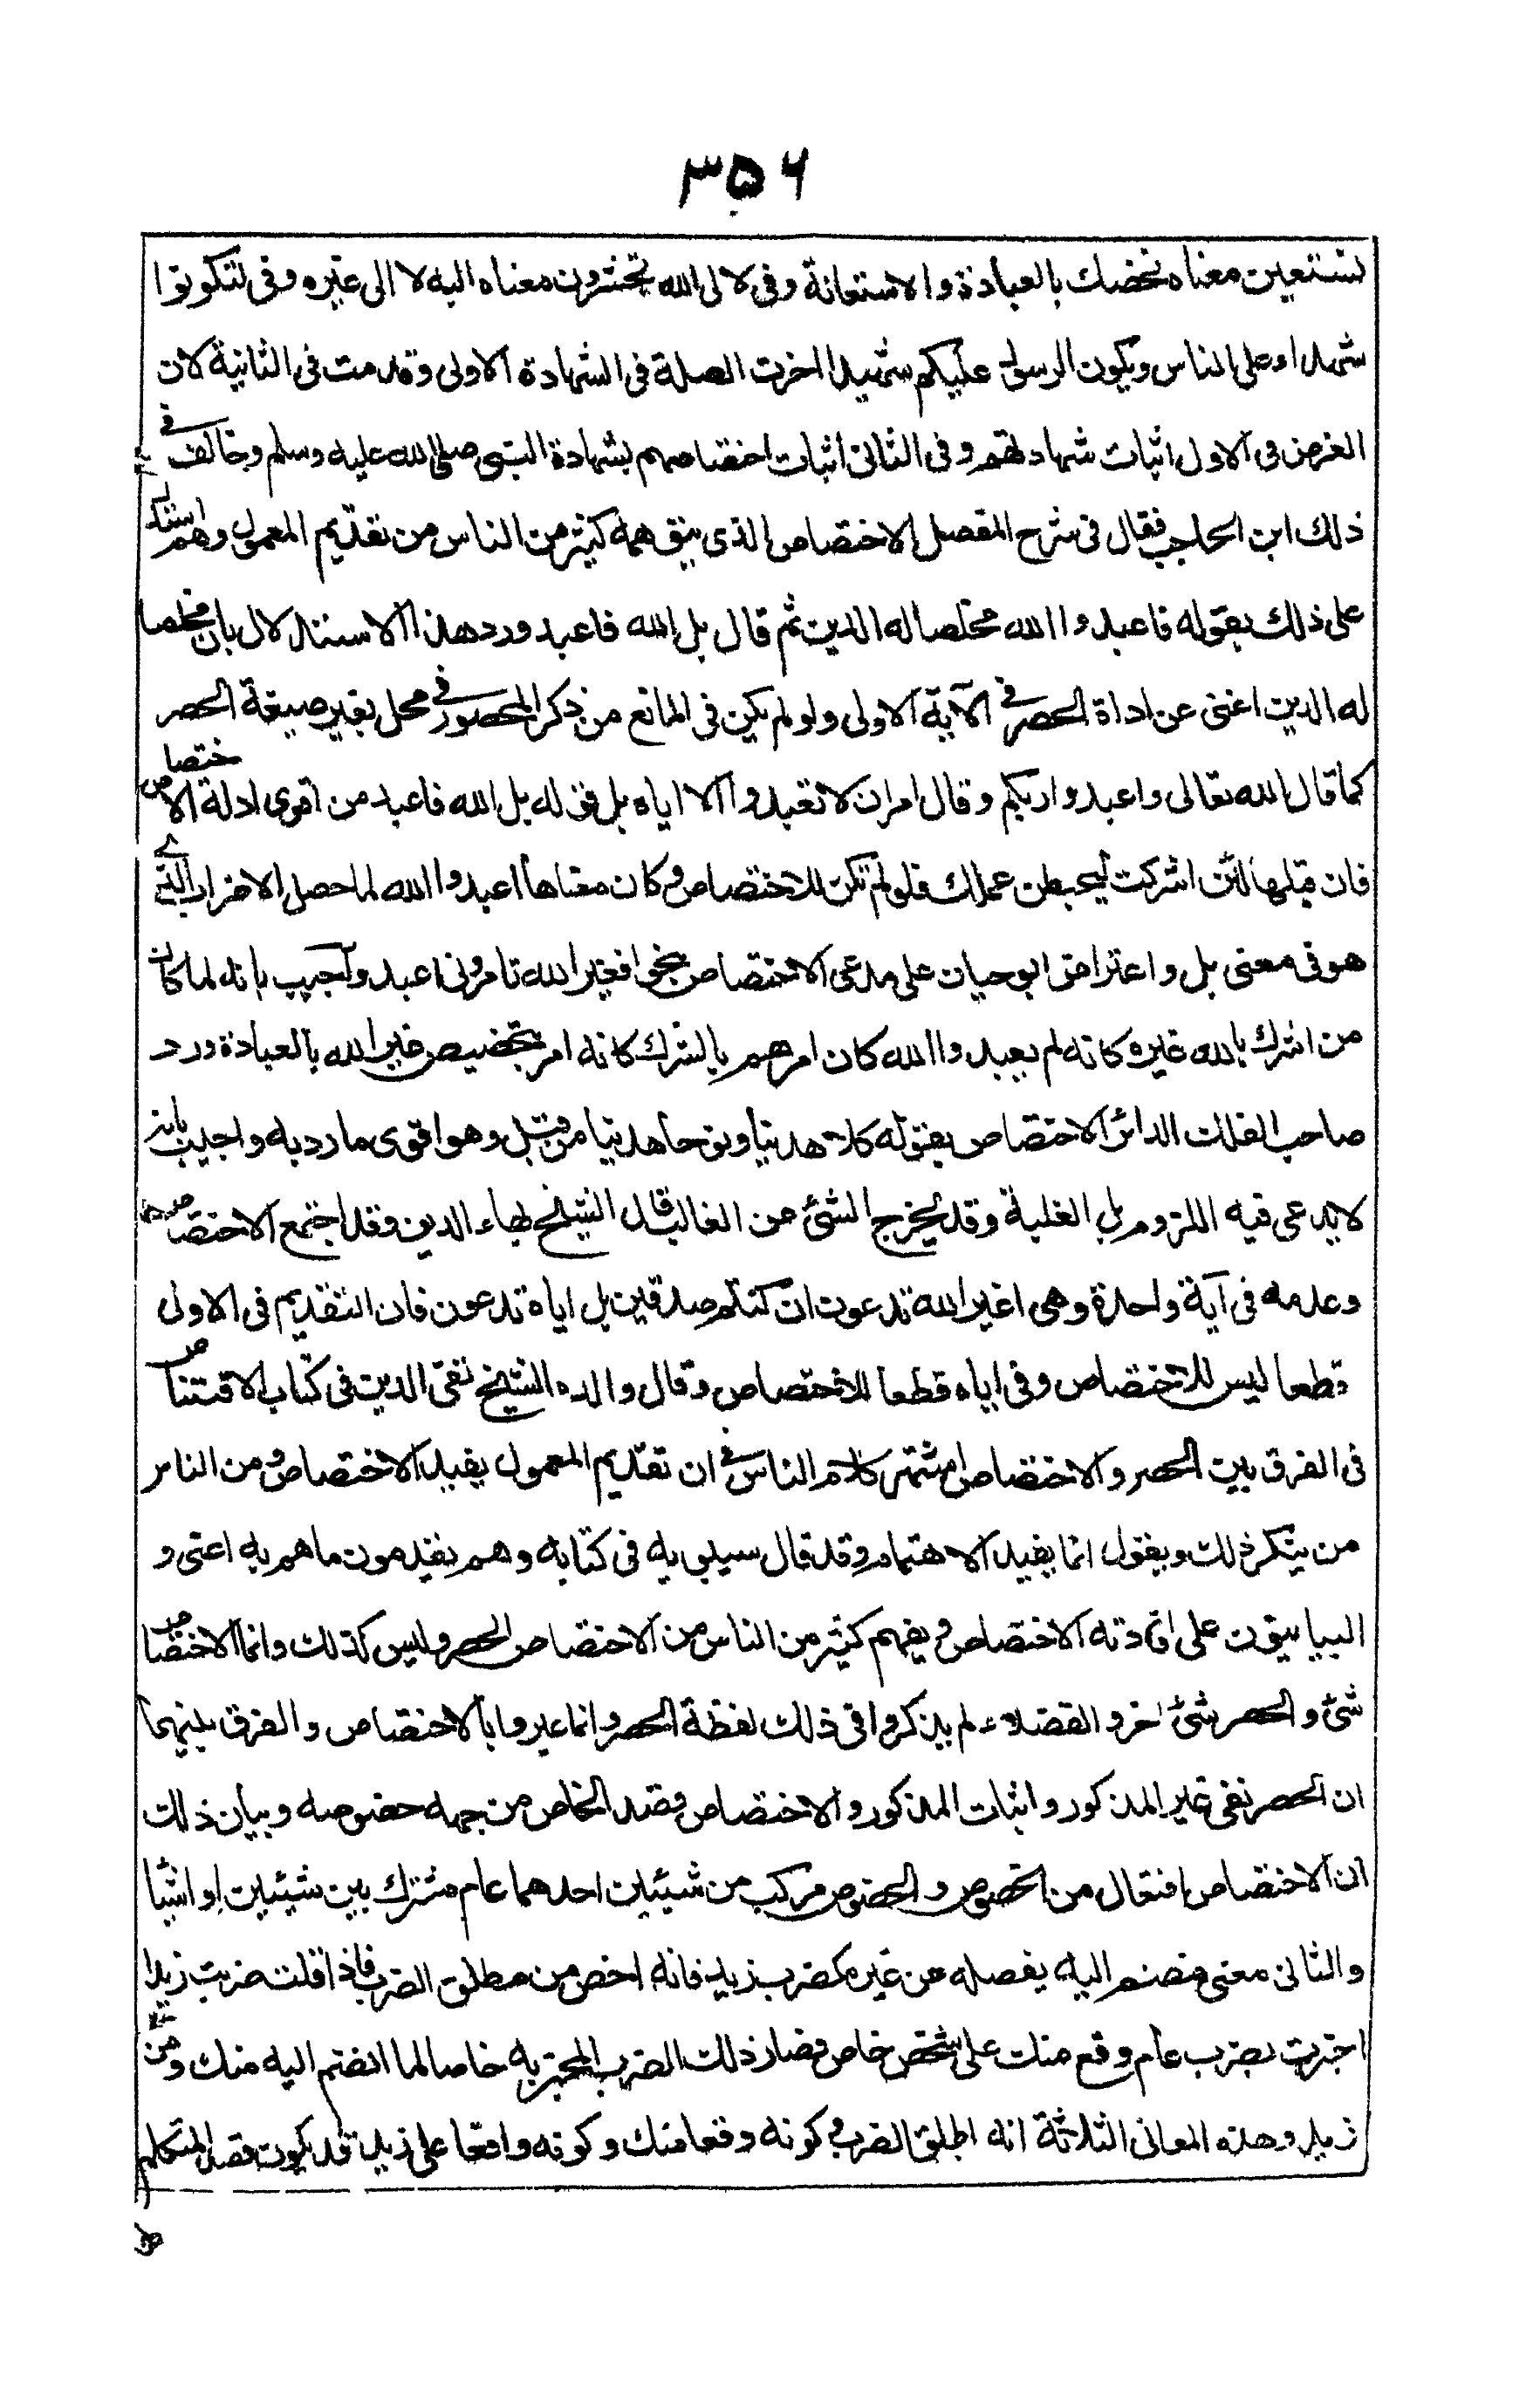 ٣٥٦
نستعين معناه نخصك بالعبادة والاستعانة وفى لا لى الله تحشرون معناه اليه لا الى غيره وفى لتكونوا
شهداء على الناس ويكون الرسول عليكم شهيدا اخرت الصلة فى الشهادة الاولى وقدمت فى الثانية لان
الغرض فى الاول اثبات شهادتهم وفى الثانى اثبات اختصاصهم بشهادة النبى صلى الله عليه وسلم وخالف فى
ذلك ابن الحاجب فقال فى شرح المفصل الاختصاص الذى يتوهمه كثير من الناس من تقديم المعمول وهم استدل
على ذلك بقوله فاعبدوا الله مخلصا له الدين ثم قال بل الله فاعبد ورد هذا الاستدلال بان مخلصا
له الدين اغنى عن اداة الحصر فى الآية الاولى ولو لم يكن فى المانع من ذكر المحصور فى محل بغير صيغة الحصر
كما قال الله تعالى واعبدوا ربكم وقال امر ان لا تعبدوا الا اياه بل قوله بل الله فاعبد من اقوى ادلة الاختصاص
فان قبلها لئن اشركت ليحبطن عملك فلو لم تكن للاختصاص وكان معناها اعبدوا الله لما حصل الاضراب الذى
هو فى معنى بل واعتراض ابو حيان على مدعى الاختصاص بنحو افغير الله تامرونى اعبد واجيب بانه لما كان
من اشرك بالله غيره كانه لم يعبدوا الله كان امرهم بالشرك كانه امر بتخصيص غير الله بالعبادة ورد
صاحب الفلك الدائر الاختصاص بقوله كلا هدينا ونوحا هدينا من قبل وهو اقوى ما رد به واجيب بانه
لا يدعى فيه اللزوم بل الغلبة وقد يخرج الشئ عن الغالب قال الشيخ بهاء الدين وقد اجتمع الاختصاص
وعدمه فى آية واحدة وهى اغير الله تدعون ان كنتم صدقين بل اياه تدعون فان التقديم فى الاولى
قطعا ليس للاختصاص وفى اياه قطعا للاختصاص وقال والده الشيخ تقى الدين فى كتاب الاقتناص
فى الفرق بين الحصر والاختصاص اشتهر كلام الناس فى ان تقديم المعمول يفيد الاختصاص ومن الناس
من ينكر ذلك ويقول انما يفيد الاهتمام وقد قال سيبويه فى كتابه وهم يقدمون ما هم به اعنى و
البيانيون على افادته الاختصاص ويفهم كثير من الناس من الاختصاص الحصر وليس كذلك وانما الاختصاص
شئ والحصر شئ اخر والفضلاء لم يذكروا فى ذلك لفظة الحصر وانما عبروا بالاختصاص والفرق بينهما
ان الحصر نفى غير المذكور واثبات المذكور والاختصاص قصد الخاص من جهه خصوصه وبيان ذلك
ان الاختصاص افتعال من الخصوص والخصوص مركب من شيئين احدهما عام مشترك بين شيئين او اشيا
والثانى معنى منضم اليه يفصله عن غيره كضرب زيد فانه اخص من مطلق الضرب فاذا قلت ضربت زيدا
اخبرت بضرب عام وقع منك على شخص خاص فصار ذلك الضرب المخبر به خاصا لما انضم اليه منك ومن
زيد وهذه المعانى الثلاثة انه اطلق الضرب وكونه وقعا منك وكونه واقعا على زيد قد يكون قصد المتكلم